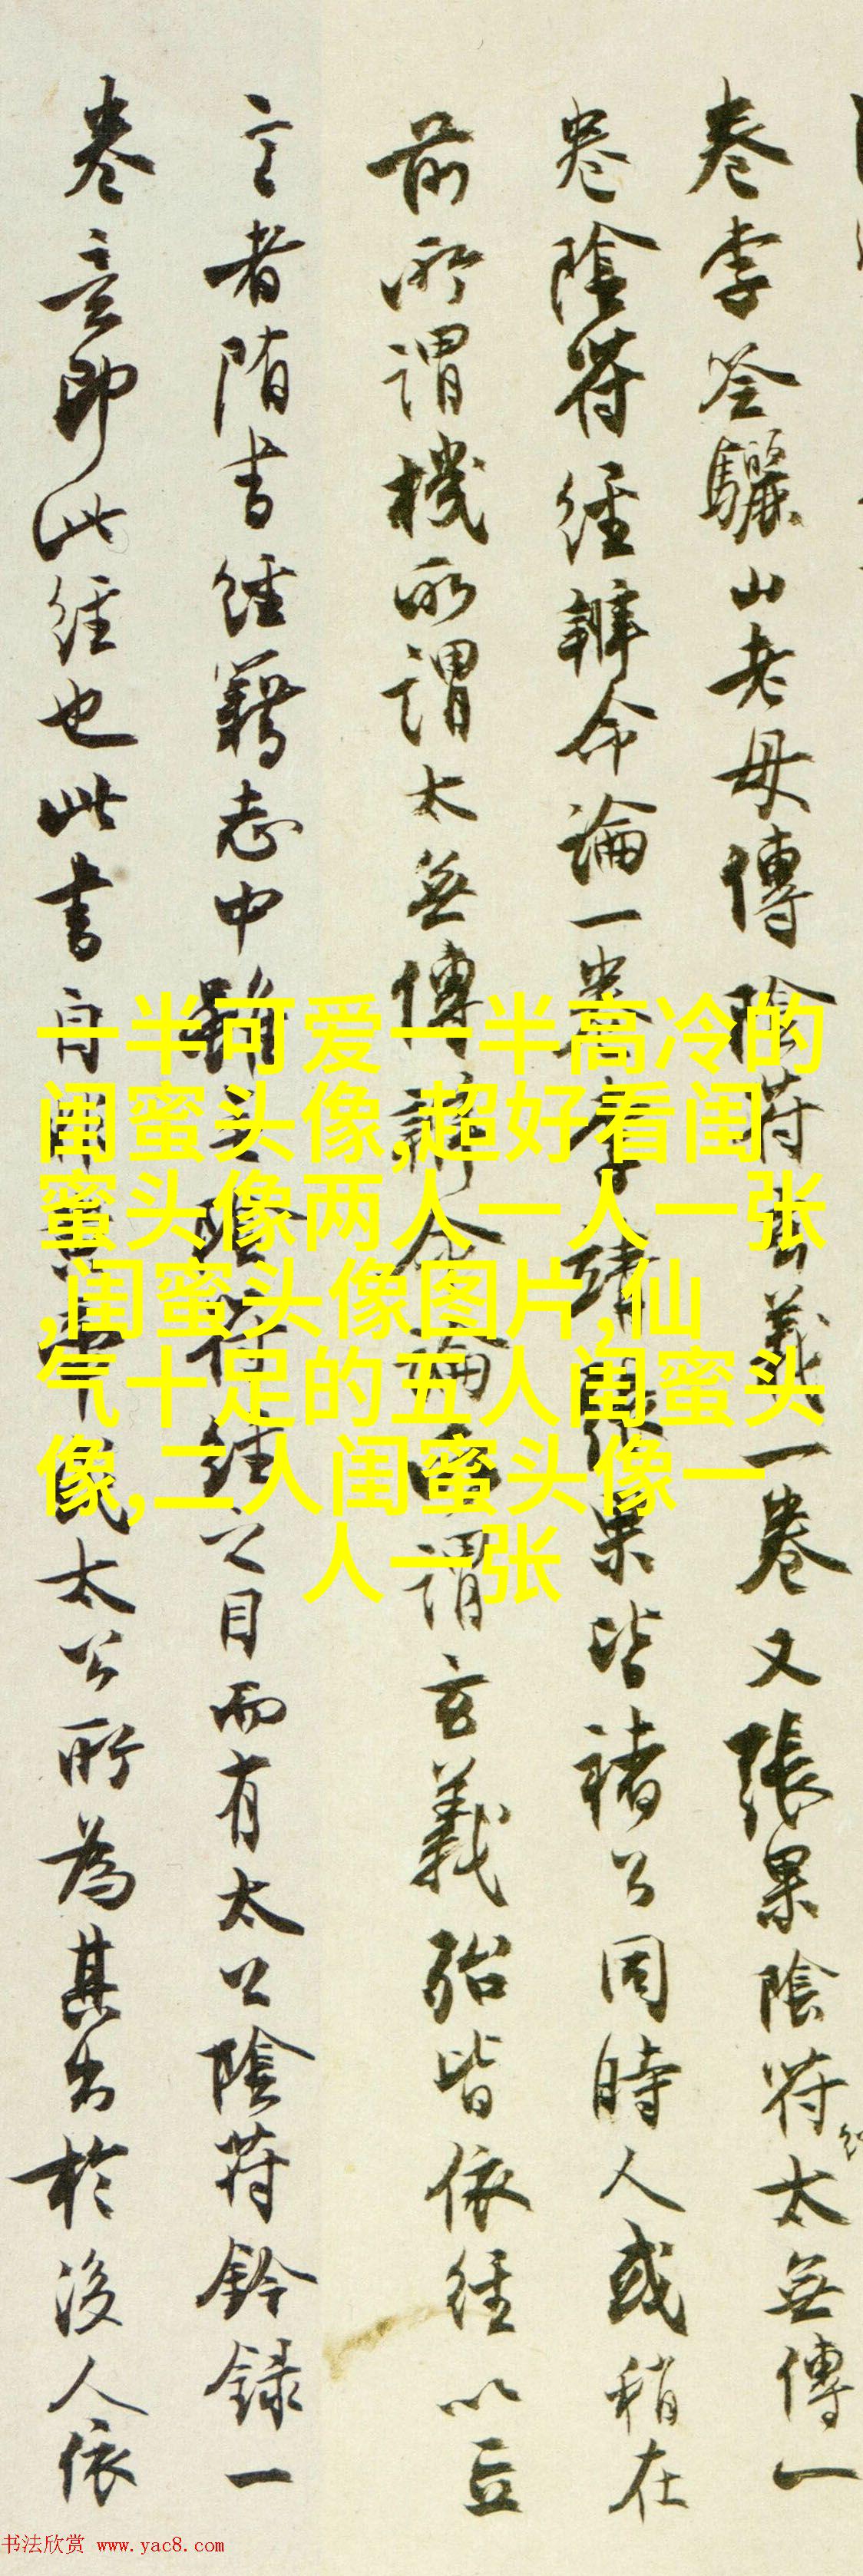 卷李筌驪山老母傳陰符玄義一卷又張果陰符太無傳一
卷陰符經辨命論一卷李靖張果皆褚公同時人或稍在
前所謂機所謂太無傳辨命論所謂玄義殆皆依經以立
言者隋書經籍志中雖無陰符經之目而有太公陰符鈐録一
卷意即此經也此書舟黃帝太公所為其出於後人依
一半可爱一半高冷的
闺蜜头像,超好看闺
蜜头像两人一人一张
,闺蜜头像图片,仙
气十足的五人闺蜜头
像,二人闺蜜头像一
人一张
书法欣赏 www.yac8.com